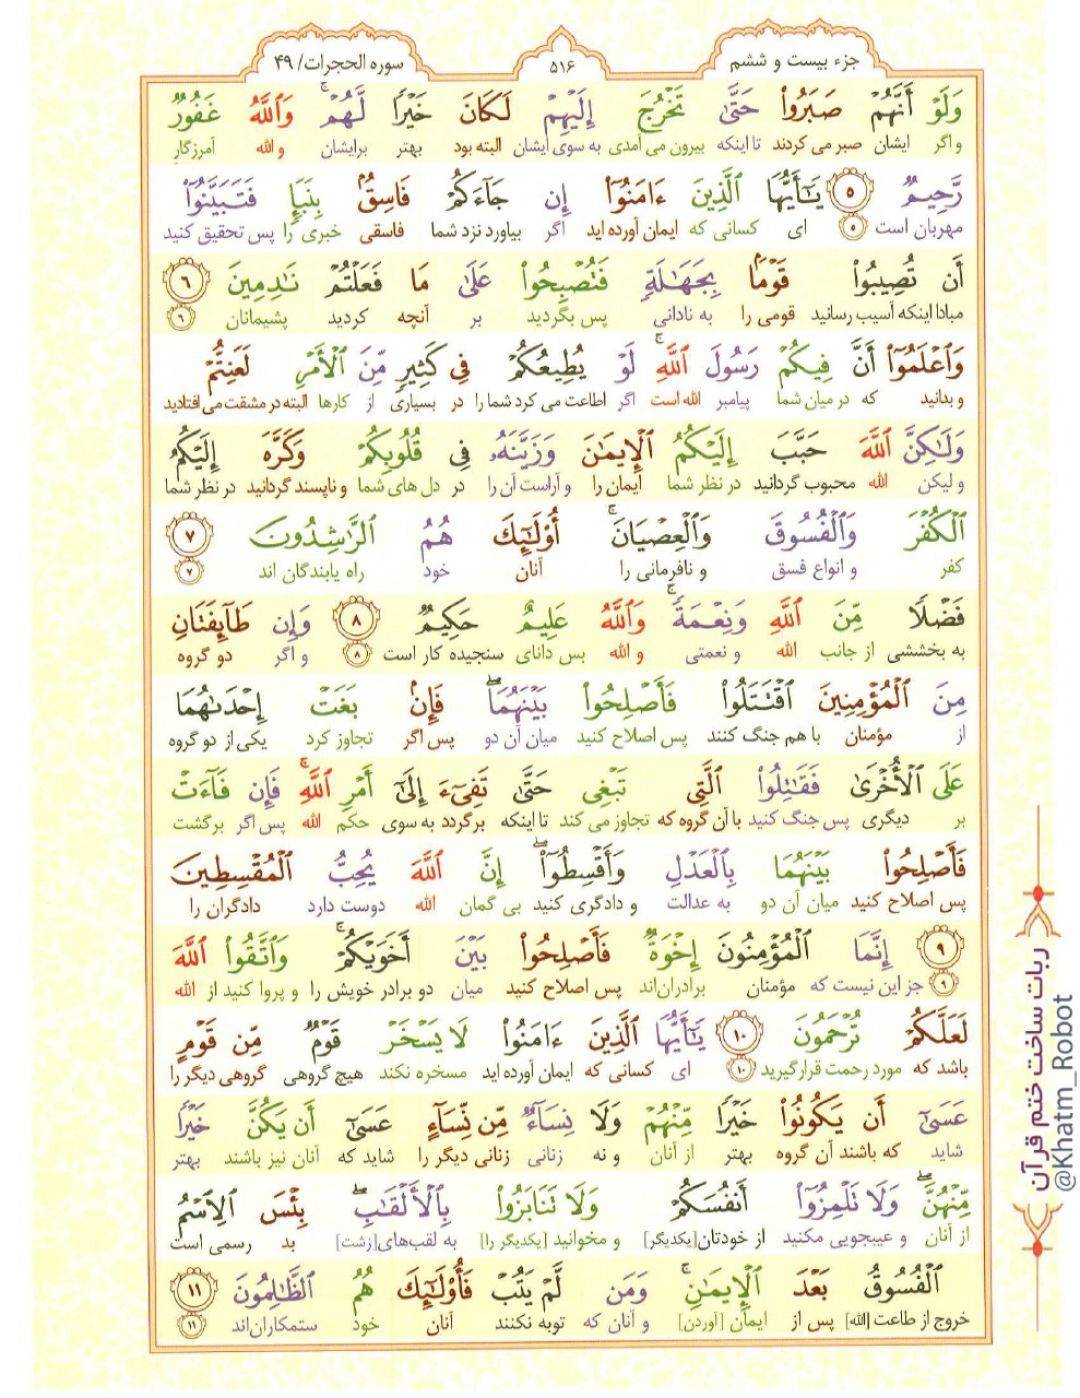 جزء بیست و ششم
۵۱۶
سوره الحجرات/ ۴۹
وَلَوْ أَنَّهُمْ صَبَرُواْ حَتَّىٰ تَخْرُجَ إِلَيْهِمْ لَكَانَ خَيْرًا لَّهُمْ ۚ وَٱللَّهُ غَفُورٌ
و اگر ایشان صبر می کردند تا اینکه بیرون می آمدی به سوی ایشان البته بود بهتر برایشان و الله آمرزگار
رَّحِيمٌ ۵ يَـٰٓأَيُّهَا ٱلَّذِينَ ءَامَنُوٓاْ إِن جَآءَكُمْ فَاسِقٌۢ بِنَبَإٍ فَتَبَيَّنُوٓاْ
مهربان است ۵ ای کسانی که ایمان آورده اید اگر بیاورد نزد شما فاسقی خبری را پس تحقیق کنید
أَن تُصِيبُواْ قَوْمَۢا بِجَهَـٰلَةٍ فَتُصْبِحُواْ عَلَىٰ مَا فَعَلْتُمْ نَـٰدِمِينَ ۶
مبادا اینکه آسیب رسانید قومی را به نادانی پس بگردید بر آنچه کردید پشیمانان ۶
وَٱعْلَمُوٓاْ أَنَّ فِيكُمْ رَسُولَ ٱللَّهِ ۚ لَوْ يُطِيعُكُمْ فِى كَثِيرٍ مِّنَ ٱلْأَمْرِ لَعَنِتُّمْ
و بدانید که در میان شما پیامبر الله است اگر اطاعت می کرد شما را در بسیاری از کارها البته در مشقت می افتادید
وَلَـٰكِنَّ ٱللَّهَ حَبَّبَ إِلَيْكُمُ ٱلْإِيمَـٰنَ وَزَيَّنَهُۥ فِى قُلُوبِكُمْ وَكَرَّهَ إِلَيْكُمُ
و لیکن الله محبوب گردانید در نظر شما ایمان را و آراست آن را در دل های شما و ناپسند گردانید در نظر شما
ٱلْكُفْرَ وَٱلْفُسُوقَ وَٱلْعِصْيَانَ ۚ أُوْلَـٰٓئِكَ هُمُ ٱلرَّٰشِدُونَ ۷
کفر و انواع فسق و نافرمانی را آنان خود راه یابندگان اند ۷
فَضْلًا مِّنَ ٱللَّهِ وَنِعْمَةً ۚ وَٱللَّهُ عَلِيمٌ حَكِيمٌ ۸ وَإِن طَآئِفَتَانِ
به بخششی از جانب الله و نعمتی و الله بس دانای سنجیده کار است ۸ و اگر دو گروه
مِنَ ٱلْمُؤْمِنِينَ ٱقْتَتَلُواْ فَأَصْلِحُواْ بَيْنَهُمَا ۖ فَإِنۢ بَغَتْ إِحْدَىٰهُمَا
از مؤمنان با هم جنگ کنند پس اصلاح کنید میان آن دو پس اگر تجاوز کرد یکی از دو گروه
عَلَى ٱلْأُخْرَىٰ فَقَـٰتِلُواْ ٱلَّتِى تَبْغِى حَتَّىٰ تَفِىٓءَ إِلَىٰٓ أَمْرِ ٱللَّهِ ۚ فَإِن فَآءَتْ
بر دیگری پس جنگ کنید با آن گروه که تجاوز می کند تا اینکه برگردد به سوی حکم الله پس اگر برگشت
فَأَصْلِحُواْ بَيْنَهُمَا بِٱلْعَدْلِ وَأَقْسِطُوٓاْ ۖ إِنَّ ٱللَّهَ يُحِبُّ ٱلْمُقْسِطِينَ
پس اصلاح کنید میان آن دو به عدالت و دادگری کنید بی گمان الله دوست دارد دادگران را
۹ إِنَّمَا ٱلْمُؤْمِنُونَ إِخْوَةٌ فَأَصْلِحُواْ بَيْنَ أَخَوَيْكُمْ ۚ وَٱتَّقُواْ ٱللَّهَ
۹ جز این نیست که مؤمنان برادران‌اند پس اصلاح کنید میان دو برادر خویش را و پروا کنید از الله
لَعَلَّكُمْ تُرْحَمُونَ ۱۰ يَـٰٓأَيُّهَا ٱلَّذِينَ ءَامَنُواْ لَا يَسْخَرْ قَوْمٌ مِّن قَوْمٍ
باشد که مورد رحمت قرارگیرید ۱۰ ای کسانی که ایمان آورده اید مسخره نکند هیچ گروهی گروهی دیگر را
عَسَىٰٓ أَن يَكُونُواْ خَيْرًا مِّنْهُمْ وَلَا نِسَآءٌ مِّن نِّسَآءٍ عَسَىٰٓ أَن يَكُنَّ خَيْرًا
شاید که باشند آن گروه بهتر از آنان و نه زنانی زنانی دیگر را شاید که آنان نیز باشند بهتر
مِّنْهُنَّ ۖ وَلَا تَلْمِزُوٓاْ أَنفُسَكُمْ وَلَا تَنَابَزُواْ بِٱلْأَلْقَـٰبِ ۖ بِئْسَ ٱلِٱسْمُ
از آنان و عیبجویی مکنید از خودتان[یکدیگر] و مخوانید [یکدیگر را] به لقب‌های[زشت] بد رسمی است
ٱلْفُسُوقُ بَعْدَ ٱلْإِيمَـٰنِ ۚ وَمَن لَّمْ يَتُبْ فَأُوْلَـٰٓئِكَ هُمُ ٱلظَّـٰلِمُونَ ۱۱
خروج از طاعت [الله] پس از ایمان [آوردن] و آنان که توبه نکنند آنان خود ستمکاران‌اند ۱۱
ربات ساخت ختم قرآن
@Khatm_Robot